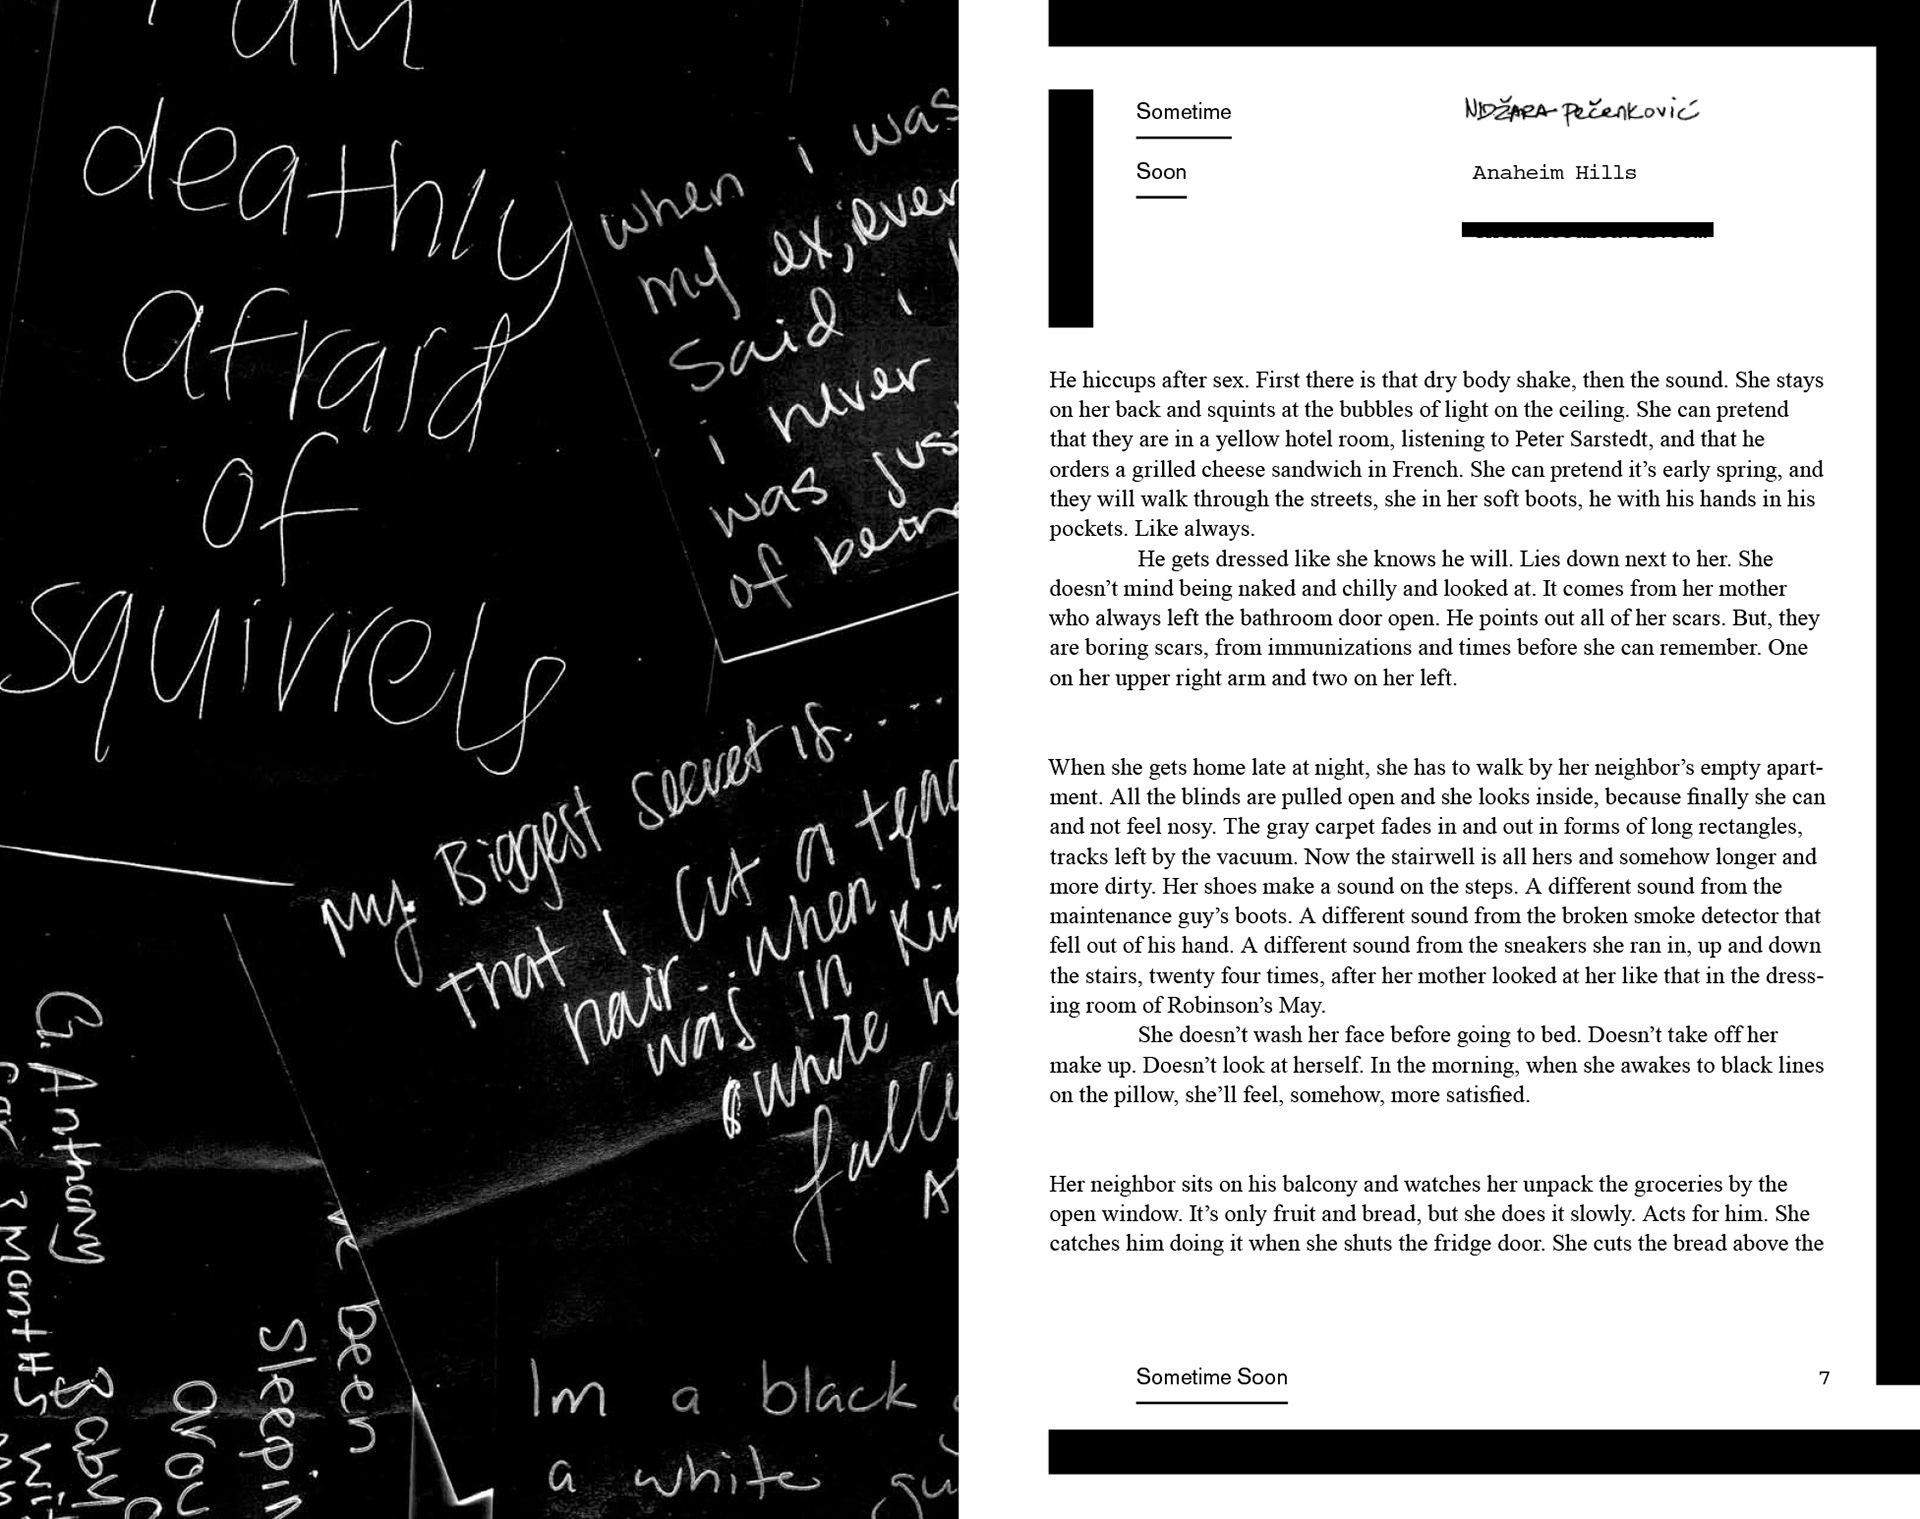 am
deathly
afraid
of
squirrels
when i was
my ex, ever
said i
i never
was
of
My Biggest secret is. . . . .
that i cut a
hair. when
was in
while
G. Anthony
3 MontHS
Baby
been
Im a black
a white
Sometime
Soon
NIDŽARA Pečenković
Anaheim Hills
He hiccups after sex. First there is that dry body shake, then the sound. She stays
on her back and squints at the bubbles of light on the ceiling. She can pretend
that they are in a yellow hotel room, listening to Peter Sarstedt, and that he
orders a grilled cheese sandwich in French. She can pretend it’s early spring, and
they will walk through the streets, she in her soft boots, he with his hands in his
pockets. Like always.
He gets dressed like she knows he will. Lies down next to her. She
doesn’t mind being naked and chilly and looked at. It comes from her mother
who always left the bathroom door open. He points out all of her scars. But, they
are boring scars, from immunizations and times before she can remember. One
on her upper right arm and two on her left.
When she gets home late at night, she has to walk by her neighbor’s empty apart-
ment. All the blinds are pulled open and she looks inside, because finally she can
and not feel nosy. The gray carpet fades in and out in forms of long rectangles,
tracks left by the vacuum. Now the stairwell is all hers and somehow longer and
more dirty. Her shoes make a sound on the steps. A different sound from the
maintenance guy’s boots. A different sound from the broken smoke detector that
fell out of his hand. A different sound from the sneakers she ran in, up and down
the stairs, twenty four times, after her mother looked at her like that in the dress-
ing room of Robinson’s May.
She doesn’t wash her face before going to bed. Doesn’t take off her
make up. Doesn’t look at herself. In the morning, when she awakes to black lines
on the pillow, she’ll feel, somehow, more satisfied.
Her neighbor sits on his balcony and watches her unpack the groceries by the
open window. It’s only fruit and bread, but she does it slowly. Acts for him. She
catches him doing it when she shuts the fridge door. She cuts the bread above the
Sometime Soon
7